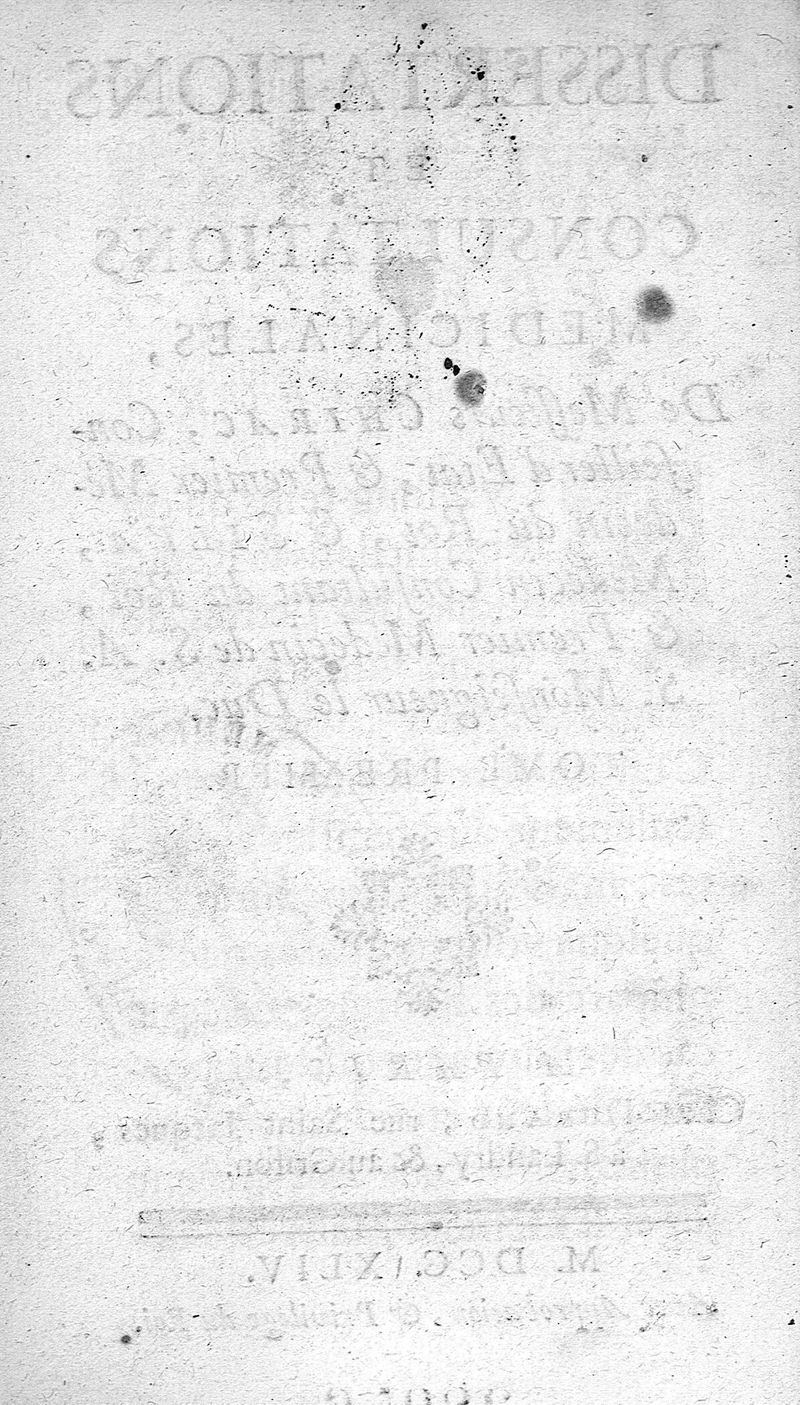 DISSERTATIONS
ET
CONSULTATIONS
MEDICINALES,
De Messieurs CHIRAC, Con-
seiller d'Etat, & Premier Mé-
decin du Roi, & SILVA,
Médecin Consultant du Roi,
& Premier Médecin de S. A.
S. Monseigneur le Duc.
TOME PREMIER.
Chez DURAND, rue Saint Jacques,
à S. Landry, & au Griffon.
M. DCC. XLIV.
Avec Approbation, & Privilége du Roi.